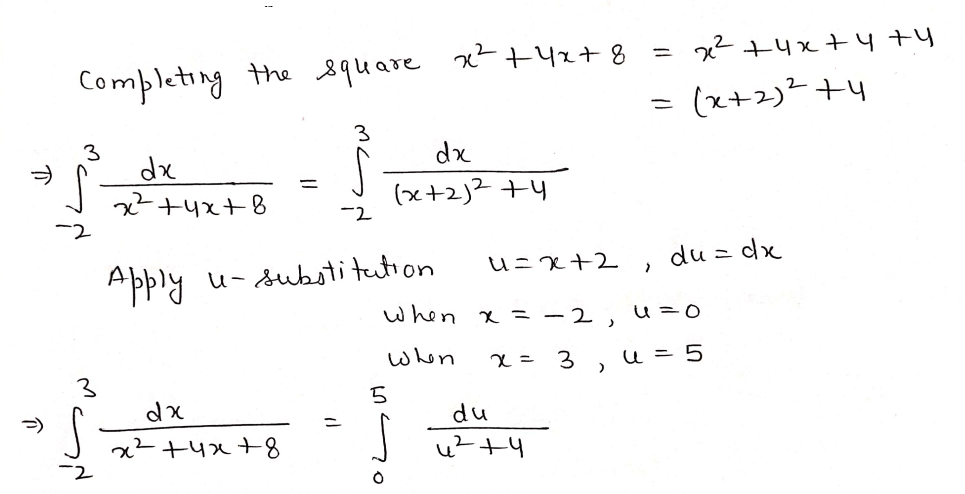 Completing the square x² + 4x + 8 = x² + 4x + 4 + 4
= (x+2)² + 4
⇒ ∫₋₂³ dx/(x² + 4x + 8) = ∫₋₂³ dx/((x+2)² + 4)
Apply u-substitution u = x + 2 , du = dx
when x = -2 , u = 0
when x = 3 , u = 5
⇒ ∫₋₂³ dx/(x² + 4x + 8) = ∫₀⁵ du/(u² + 4)